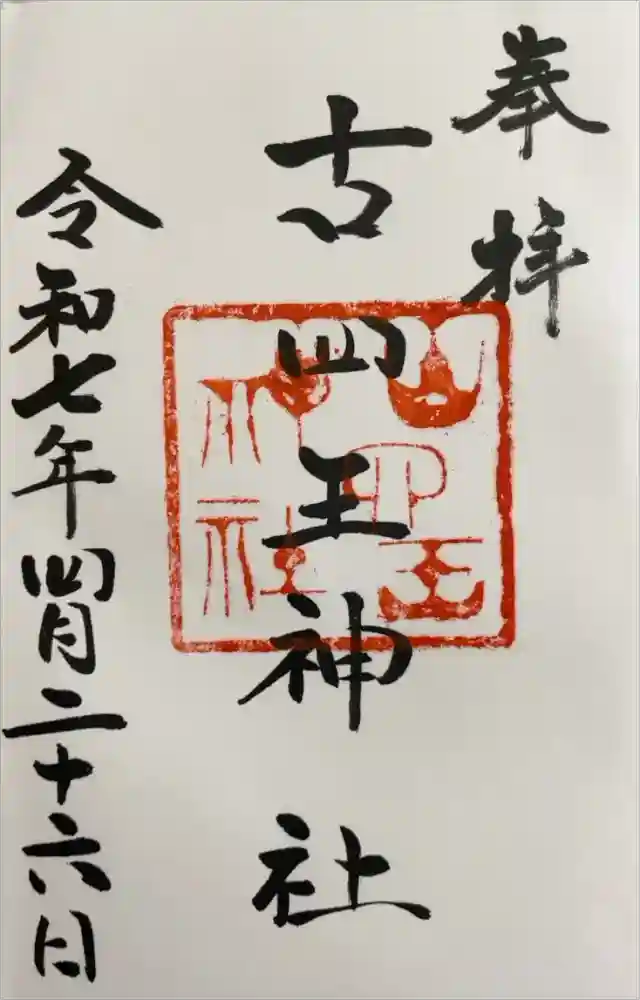 奉拝
古四王神社
令和七年四月二十六日
古四王神社